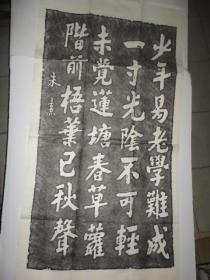 少年易老學難成
一寸光陰不可輕
未覺蓮塘春草蘿
階前梧葉已秋聲
朱熹